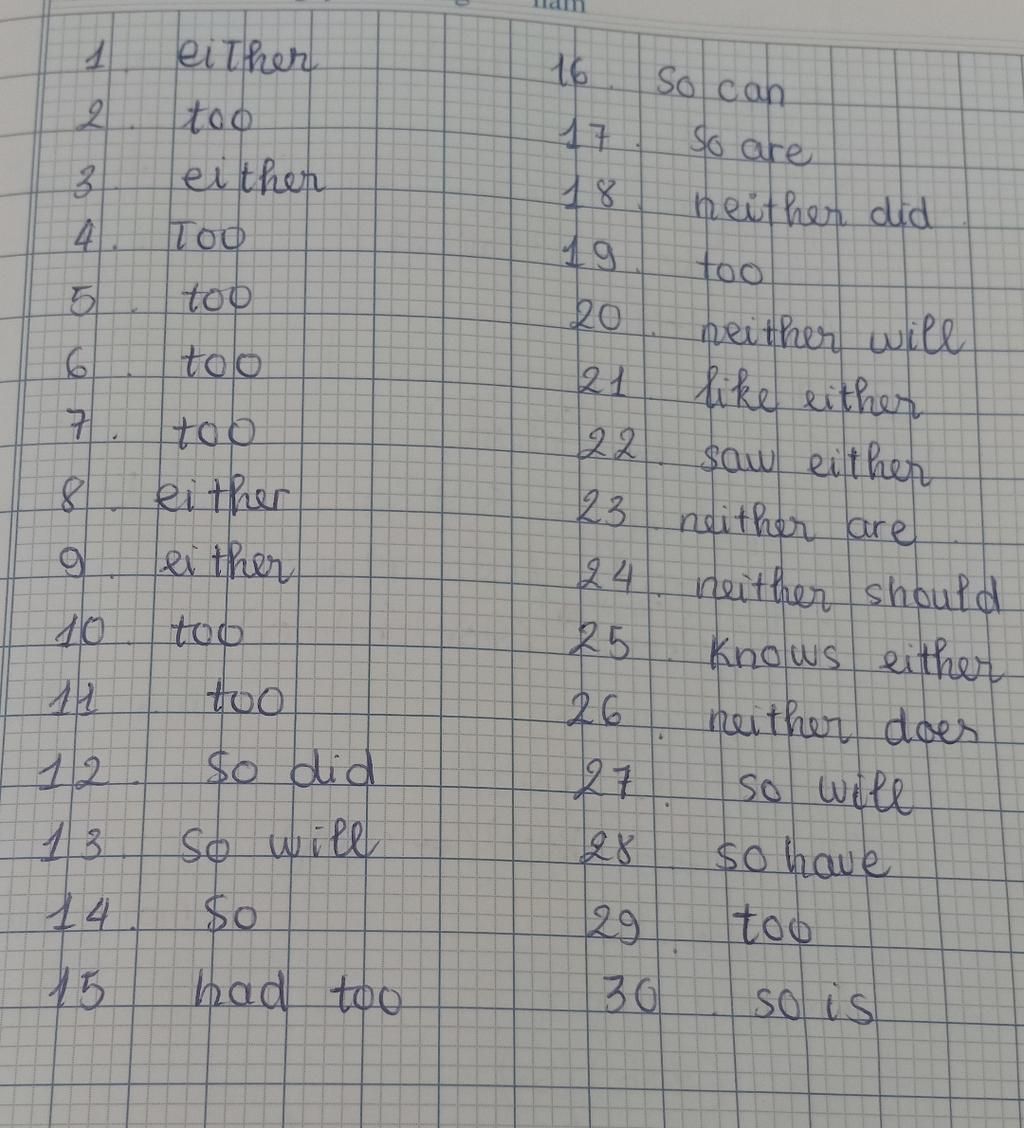 nam
1. either
2. too
3. either
4. Too
5. too
6. too
7. too
8. either
9. either
10. too
11. too
12. so did
13. so will
14. so
15. had too
16. so can
17. so are
18. neither did
19. too
20. neither will
21. like either
22. saw either
23. neither are
24. neither should
25. knows either
26. neither does
27. so will
28. so have
29. too
30. so is